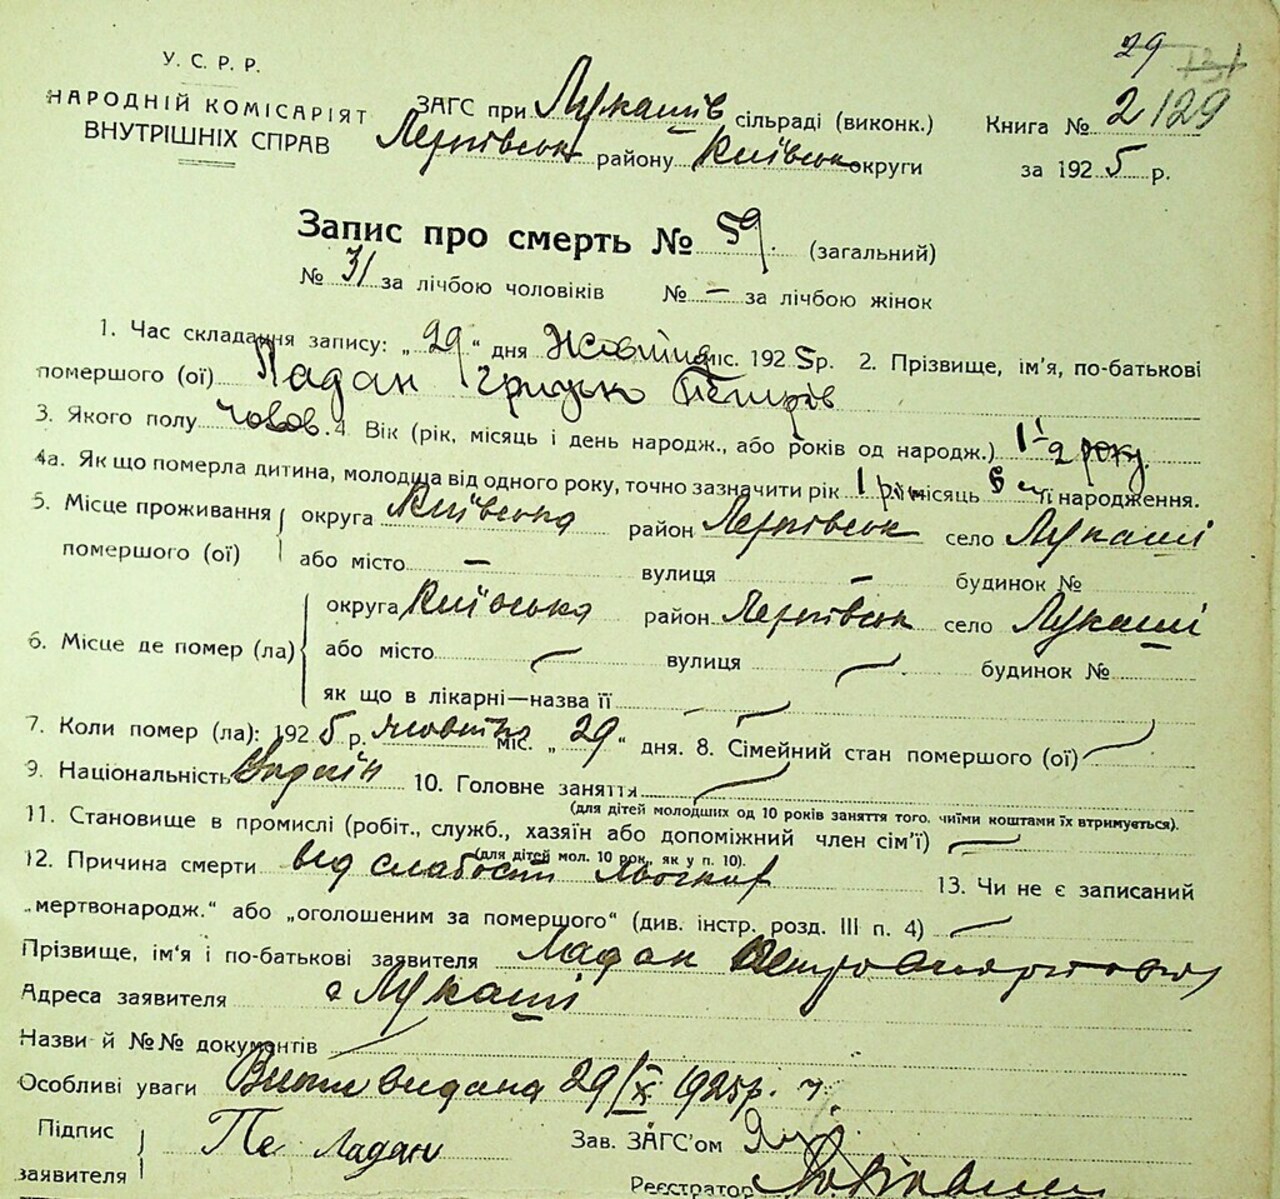 29
У. С. Р. Р.
НАРОДНІЙ КОМІСАРІЯТ
ВНУТРІШНІХ СПРАВ
ЗАГС при Лукашів сільраді (виконк.)
районy Київськ округи
Книга № 2 129
за 1925 р.
Запис про смерть № 59. (загальний)
№ 31 за лічбою чоловіків № — за лічбою жінок
1. Час складання запису: „29“ дня Жовтня міс. 1925 р. 2. Прізвище, ім'я, по-батькові
помершого (ої) Ладан Грицько Петрів
3. Якого полу чолов. 4 Вік (рік, місяць і день народж., або років од народж.) 1 1/2 року.
4а. Як що померла дитина, молодша від одного року, точно зазначити рік 1 рік місяць 6 м її народження.
5. Місце проживання помершого (ої) округа Київська район село Лукаші
або місто — вулиця — будинок №
6. Місце де помер (ла) округа Київська район село Лукаші
або місто — вулиця — будинок №
як що в лікарні—назва її —
7. Коли помер (ла): 1925 р. жовтня міс. „29“ дня. 8. Сімейний стан помершого (ої) —
9. Національність 10. Головне заняття —
(для дітей молодших од 10 років заняття того, чиїми коштами їх втримується).
11. Становище в промислі (робіт., служб., хазяїн або допоміжний член сім'ї) —
(для дітей мол. 10 рок., як у п. 10).
12. Причина смерти від слабости 13. Чи не є записаний
„мертвонародж.“ або „оголошеним за помершого“ (див. інстр. розд. III п. 4) —
Прізвище, ім'я і по-батькові заявителя Ладан Петро
Адреса заявителя с Лукаші
Назви й №№ документів —
Особливі уваги видана 29/X 1925 р.
Підпис заявителя Пе Ладан
Зав. ЗАГС'ом
Реєстратор